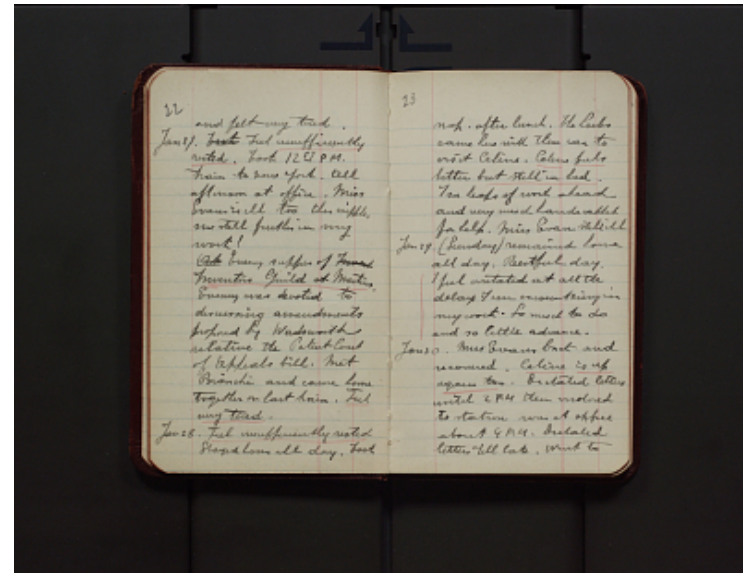 22
and felt very tired.
Jan 27. Feel insufficiently
rested. Took 12 P.M.
train to New York. Till
afternoon at office. Miss
Evans ill too this
me still further in my
work!
Eveng supper of
Inventors Guild at
Evening was devoted to
discussing amendments
proposed by Wadsworth
relative the Patent Court
of Appeals bill. Met
Bianchi and came home
together on last train. Feel
very tired.
Jan 28. Feel insufficiently rested
Stayed home all day. Took
23
nap after lunch. The
came here with their car to
visit Celine. Celine feels
better but still in bed.
I'm heaps of work ahead
and very much handicapped
for help. Miss Evans still ill
Jan 29. (Sunday) remained home
all day. Restful day.
I feel irritated at all the
delays I am encountering in
my work. So much to do
and so little advance.
Jan 30. Miss Evans back and
recovered. Celine is up
again too. Dictated letters
until 2 PM then motored
to station was at office
about 4 P.M. Dictated
letters till late. Went to